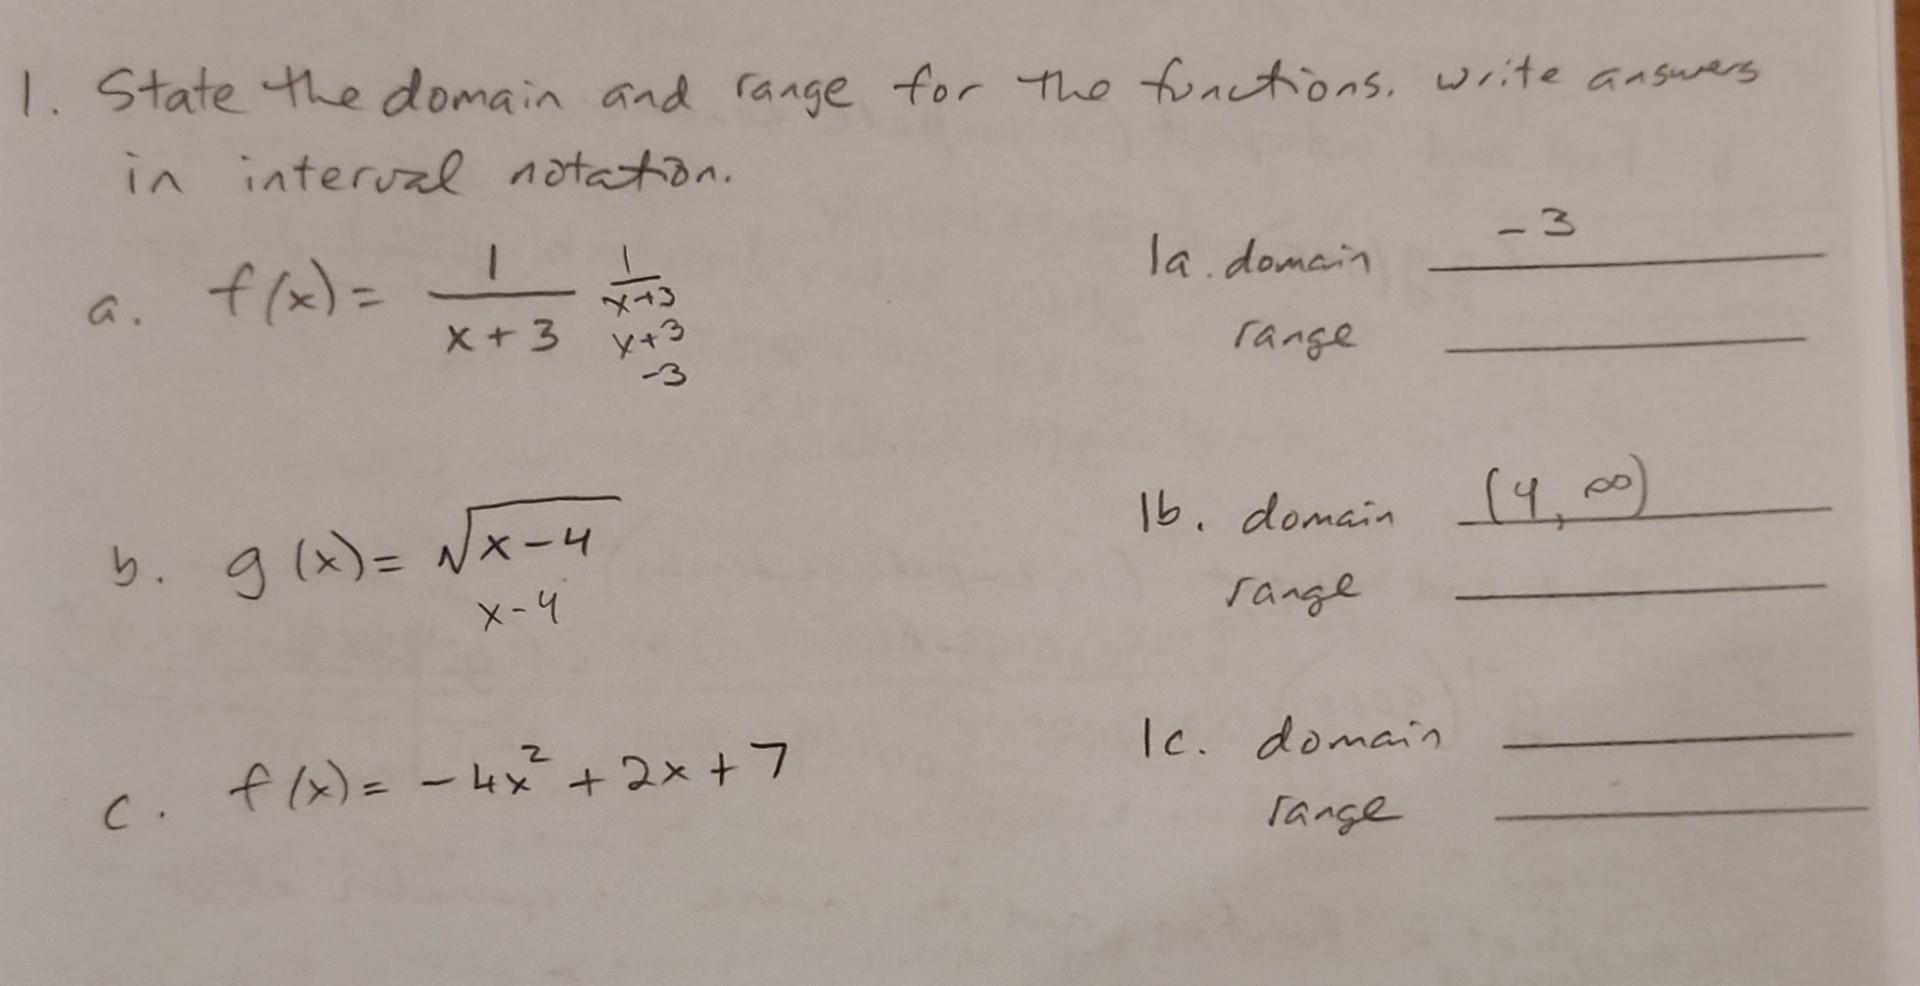 1. State the domain and range for the functions. write answers
in interval notation.
a. f(x) = 1/(x + 3)
1/(x+3)
x+3
-3
1a. domain -3
range
b. g(x) = √(x-4)
x-4
1b. domain (4, ∞)
range
c. f(x) = -4x² + 2x + 7
1c. domain
range